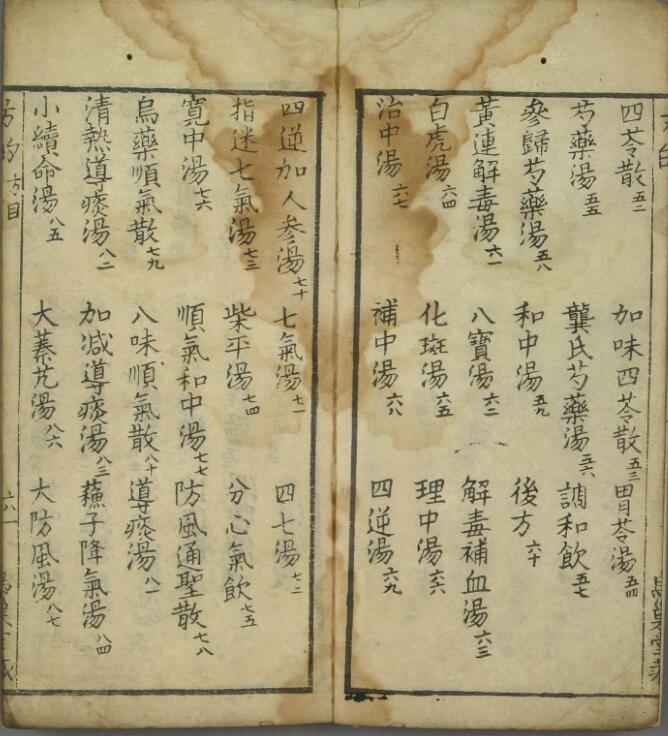 四苓散五二 加味四苓散五三 胃苓湯五四
芍藥湯五五 龔氏芍藥湯五六 調和飲五七
參歸芍藥湯五八 和中湯五九 後方六十
黃連解毒湯六一 八寶湯六二 解毒補血湯六三
白虎湯六四 化斑湯六五 理中湯六六
治中湯六七 補中湯六八 四逆湯六九
四逆加人參湯七十 七氣湯七一 四七湯七二
指迷七氣湯七三 柴平湯七四 分心氣飲七五
寬中湯七六 順氣和中湯七七 防風通聖散七八
烏藥順氣散七九 八味順氣散八十 導痰湯八一
清熱導痰湯八二 加减導痰湯八三 蘇子降氣湯八四
小續命湯八五 大蓁艽湯八六 大防風湯八七
目 六一